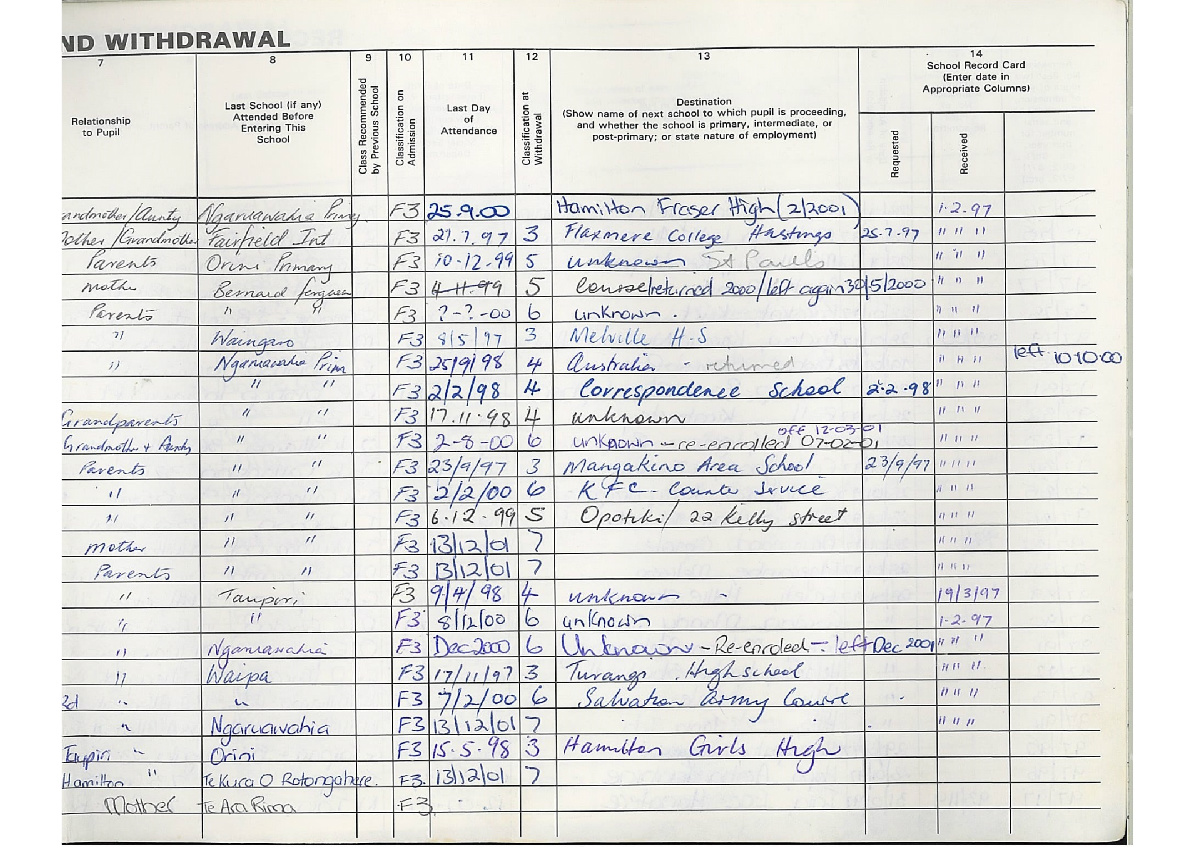 ND WITHDRAWAL
7 8 9 10 11 12 13 14
Relationship to Pupil
Last School (if any) Attended Before Entering This School
Class Recommended by Previous School
Classification on Admission
Last Day of Attendance
Classification at Withdrawal
Destination
(Show name of next school to which pupil is proceeding, and whether the school is primary, intermediate, or post-primary; or state nature of employment)
School Record Card
(Enter date in Appropriate Columns)
Requested
Received
andmother/Aunty Ngaruawahia Prim F3 25.9.00 Hamilton Fraser High (2/2001) 1.2.97
Mother/Grandmother Fairfield Int F3 21.7.97 3 Flaxmere College Hastings 25.7.97 " " "
Parents Orini Primary F3 10-12-99 5 unknown St Paul's " " "
Mother Bernard ferguson F3 4-11-99 5 Course/returned 2000/left again 30/5/2000 " " "
Parents " " F3 ?-?-00 6 unknown. " " "
" Waingaro F3 8/5/97 3 Melville H.S " " "
" Ngaruawahia Prim F3 25/9/98 4 Australia - returned " " " left 10.10.00
" " F3 2/2/98 4 Correspondence School 2.2.98 " " "
Grandparents " " F3 17.11.98 4 unknown " " "
Grandmother + Aunty " " F3 2-8-00 6 unknown - re-enrolled 07-02-01 off 12-03-01 " " "
Parents " " F3 23/9/97 3 Mangakino Area School 23/9/97 " " "
" " " F3 2/2/00 6 KFC - Counta Service " " "
" " " F3 6.12.99 5 Opotiki/ 22 Kelly street " " "
Mother " " F3 13/12/01 7 " " "
Parents " " F3 13/12/01 7 " " "
" Taupiri F3 9/4/98 4 unknown - 19/3/97
" " F3 8/12/00 6 unknown 1-2.97
" Ngaruawahia F3 Dec 2000 6 Unknown - Re-enroled - left Dec 2001 " " "
" Waipa F3 17/11/97 3 Turangi Highschool " " "
" " F3 7/2/00 6 Salvation Army Course " " "
" Ngaruawahia F3 13/12/01 7 " " "
Taupiri " Orini F3 15.5.98 3 Hamilton Girls High
Hamilton " Te Kura O Rotongahere. F3. 13/12/01 7
Mother Te Ara Rima F3